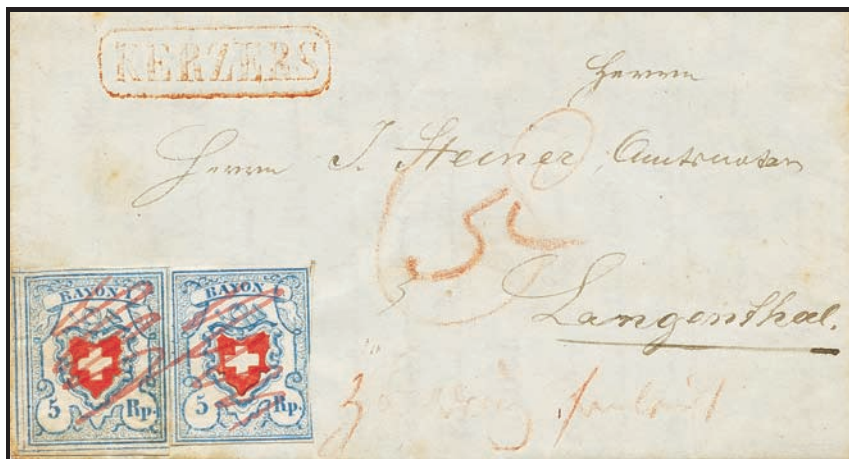 KERZERS
Herrn
Herrn J. Steiner, Amtsnotar
5
Langenthal.
RAYON I
5 Rp.
RAYON I
5 Rp.